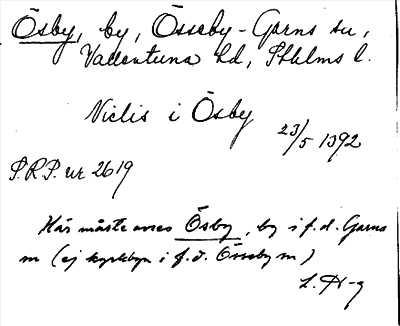 Ösby, by, Össeby-Garns sn,
Vallentuna hd, Sthlms l.
Niclis i Ösby
23/5 1392
S.R.P. nr 2619
Här måste avses Ösby, by i f.d. Garns
sn (ej kyrkbyn i f.d. Össeby sn)
L. H-g